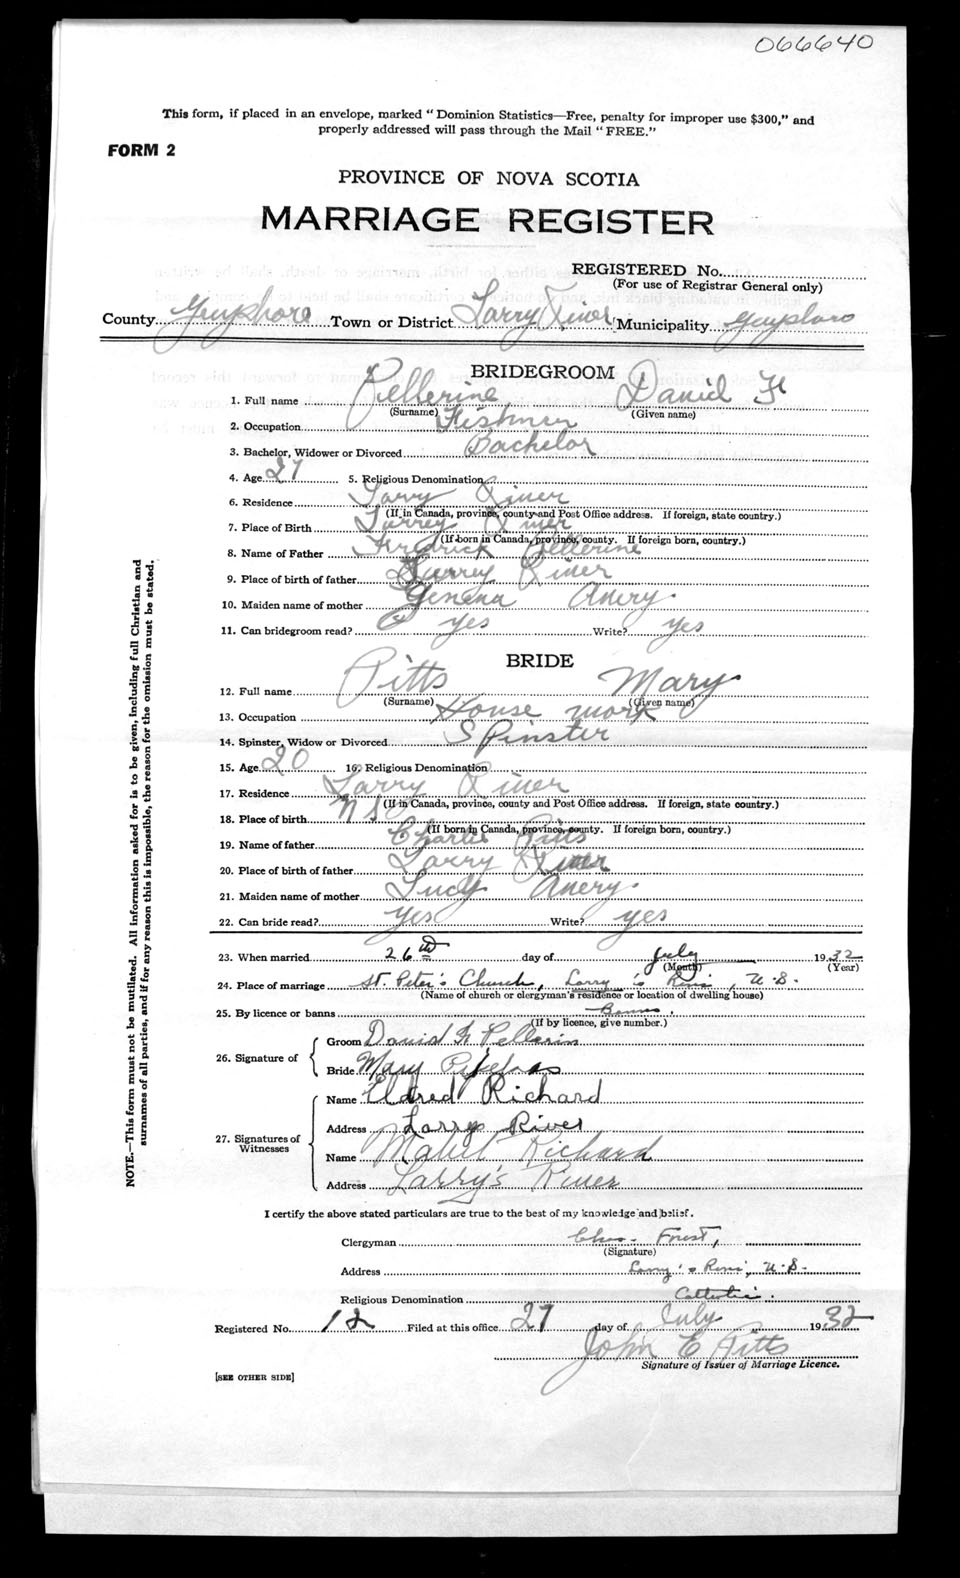 066640
This form, if placed in an envelope, marked "Dominion Statistics—Free, penalty for improper use $300," and
properly addressed will pass through the Mail "FREE."
FORM 2
PROVINCE OF NOVA SCOTIA
MARRIAGE REGISTER
REGISTERED No.
(For use of Registrar General only)
County Guysboro Town or District Larry River Municipality Guysboro
BRIDEGROOM
1. Full name Pellerine David H
(Surname) (Given name)
2. Occupation Fishmen
3. Bachelor, Widower or Divorced Bachelor
4. Age 27 5. Religious Denomination
6. Residence Larry River
(If in Canada, province, county and Post Office address. If foreign, state country.)
7. Place of Birth Larrey River
(If born in Canada, province, county. If foreign born, country.)
8. Name of Father Fredrick Pellerine
9. Place of birth of father Larrey River
10. Maiden name of mother Avery
11. Can bridegroom read? yes Write? yes
BRIDE
12. Full name Pitts Mary
(Surname) (Given name)
13. Occupation House work
14. Spinster, Widow or Divorced SPinster
15. Age 20 16. Religious Denomination
17. Residence Larry River
(If in Canada, province, county and Post Office address. If foreign, state country.)
18. Place of birth N S
(If born in Canada, province, county. If foreign born, country.)
19. Name of father Charlie Pitts
20. Place of birth of father Larry River
21. Maiden name of mother Lucy Avery
22. Can bride read? yes Write? yes
23. When married 26th day of July 1932
(Month) (Year)
24. Place of marriage St. Peter's Church, Larry's River, N.S.
(Name of church or clergyman's residence or location of dwelling house)
25. By licence or banns Banns.
(If by licence, give number.)
26. Signature of
Groom David H Pellerin
Bride Mary
27. Signatures of Witnesses
Name Eldred Richard
Address Larrys River
Name Mabel Richard
Address Larry's River
I certify the above stated particulars are true to the best of my knowledge and belief.
Clergyman Chas. Forest,
(Signature)
Address Larry's River, N.S.
Religious Denomination Catholic.
Registered No. 12 Filed at this office 27 day of July 1932
John E Pitts
Signature of Issuer of Marriage Licence.
[SEE OTHER SIDE]
NOTE.—This form must not be mutilated. All information asked for is to be given, including full Christian and
surnames of all parties, and if for any reason this is impossible, the reason for the omission must be stated.